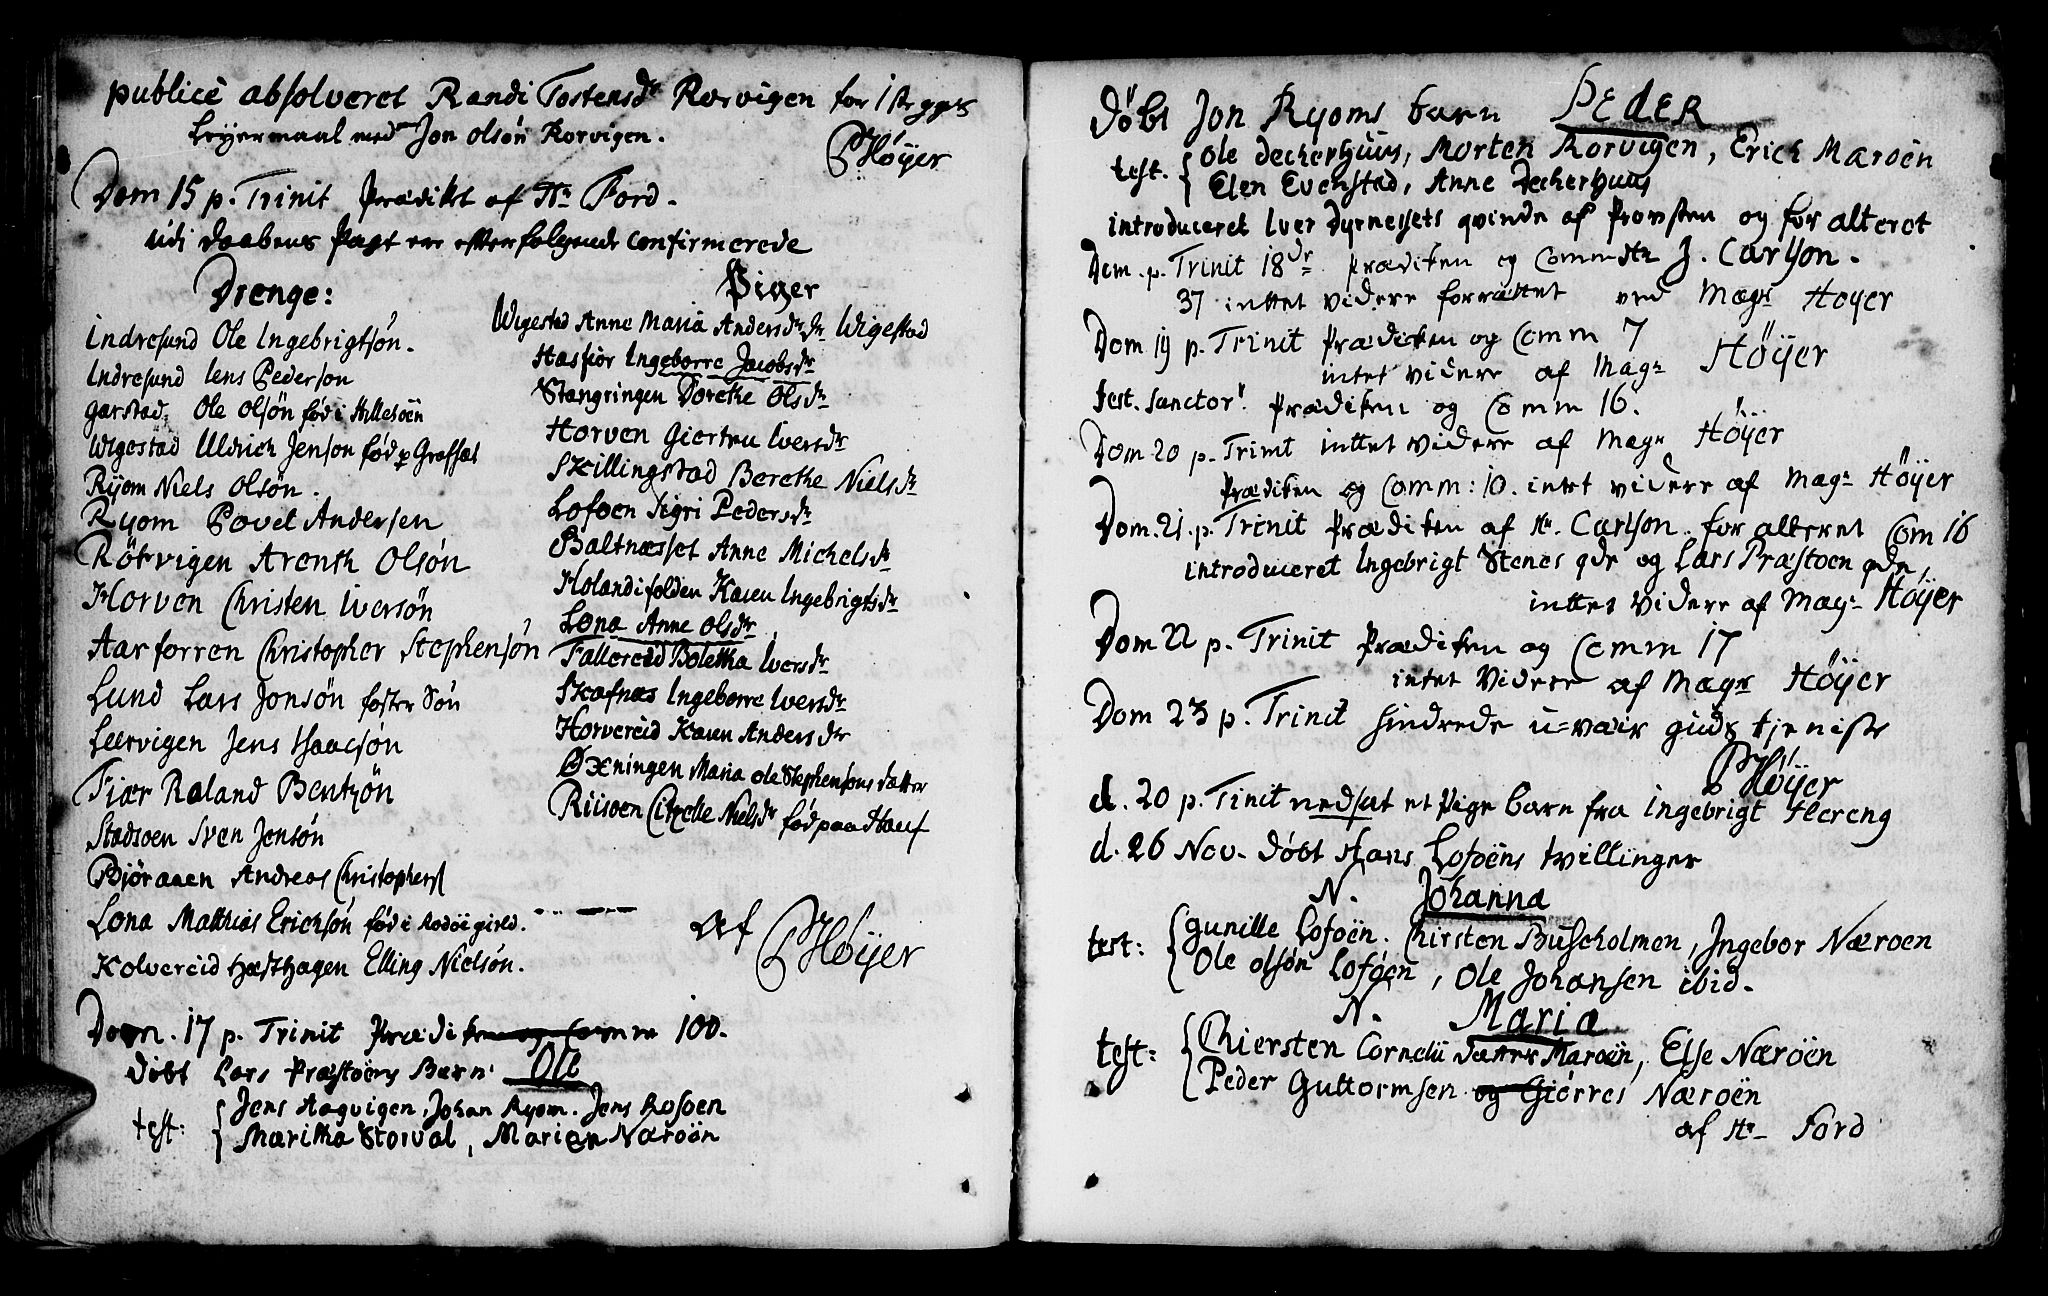 publicè absolveret Randi Tostensdr Rorvigen for 1 st gges
Leyermaal med Jon Olsön Rorvigen.
PHöyer
Dom 15 p. Trinit Prædiket af Hr Ford.
udi Daabens Pagt ere efterfolgende confirmerede
Drenge:
Indresund Ole Ingebrigtsön.
Indresund Iens Pederson
Garstad. Ole Olsön fød i Hillesöen
Wigestad Uldrich Jenson fød p Grossæt
Ryom Niels Olsön.
Ryom Povel Andersen
Rötvigen Arenth Olsön
Horven Christen Iversön
Aarforren Christopher Stephensön
Lund Lars Jonsön foster Sön
Leervigen Jens Isaacsön
Fiær Roland Bentzön
Stadsoen Sven Jensön
Björaaen Andreas Christophers
Lona Mathias Ericksön fød i Rodöi gield.
Kolvereid Hæsthagen Elling Nielsön.
Piger
Wigestad Anne Maria Andersdr Wigestad
Hasfior Ingeborre Jacobsdr
Stangringen Dorethe Olsdr
Horven Giertru Iversdr
Skillingstad Berethe Nielsdr
Lofoen Sigri Pedersdr
Baltnæsset Anne Michelsdr
Holandifolden Karen Ingebrigtsdr
Lona Anne Olsdr
Fallereid Boletha Iversdr
Skafnæs Ingeborre Iversdr
Horvereid Karen Andersdr
Øxningen Maria Ole Stephensons datter
Riisoen Citzelle Nielsdr fød paa Hauf
af PHöyer
Dom. 17 p. Trinit Prædiken og Comm 100.
døbt Lars Præstoens Barn Ole
test: Jens Aagvigen, Johan Ryom. Jens Rosoen
Maritha Storval, Maren Næröen
Döbt Jon Ryoms barn PEDER
test. Ole Deckerhuus, Morten Rorvigen, Erich Maroen
Elen Evenstad, Anne Deckerhuus
introduceret Iver Dyrnessets qvinde af Provsten og for alteret
Dom. p. Trinit 18de Prædiken og Comm Hr J. Carlson.
37 intet videre forrættet ved Magr Höyer
Dom 19 p. Trinit Prædiken og Comm 7
intet videre af Magr Höyer
Fest. Sanctor. Prædiken og Comm 16.
Dom 20 p. Trinit intet videre af Magr Höyer
Prædiken og Comm: 10. intet videre af Magr Höyer
Dom. 21. p. Trinit Prædiken af Hr. Carlson. for alteret Com 16
introduceret Ingebrigt Stenes qde og Lars Præstoen qde,
intet videre af Magr Höyer
Dom 22 p. Trinit Prædiken og Comm 17
intet videre af Magr Höyer
Dom 23 p. Trinit hindrede u=vair guds tjeniste
PHöyer
d. 20 p. Tinit nedsat et Pige barn fra Ingebrigt Hereng
d. 26 Nov. döbt Hans Lofoens tvillinger
N. Johanna
test: Gunille Lofoen. Chirsten Buscholmen, Ingebor Næroen
Ole Olsön Lofoen, Ole Johansen ibid.
N. Maria
test: Chiersten Cornelii datter Maroen, Else Næröen
Peder Guttormsen og Giörres Næröen
af Hr Ford